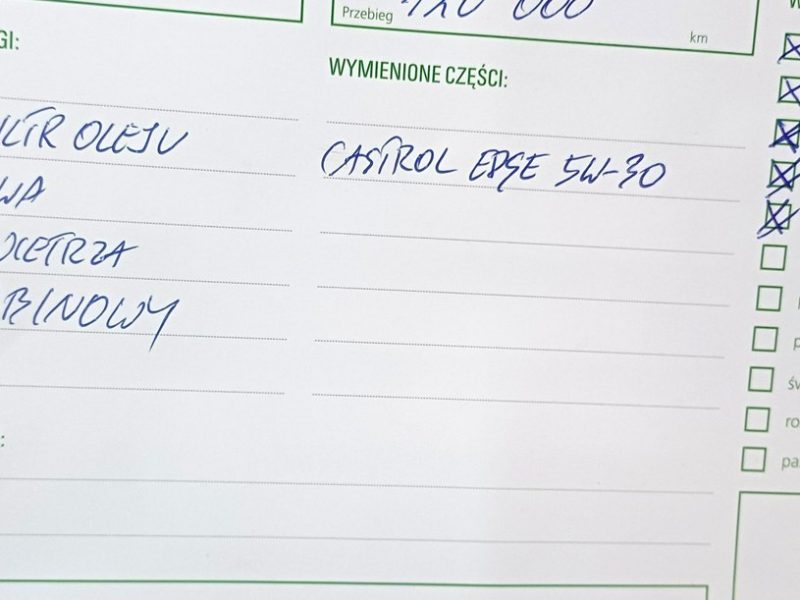 Przebieg 120 000 km
GI:
WYMIENIONE CZĘŚCI:
LTR OLEJU
CASTROL EDGE 5W-30
WA
IETRZA
BINOWY
:
św
ro
pa